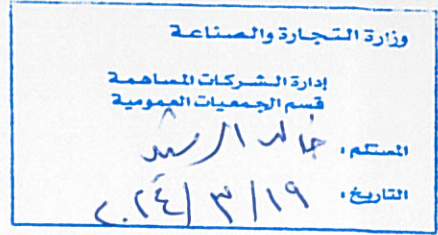 وزارة التجارة والصناعة
إدارة الشركات المساهمة
قسم الجمعيات العمومية
المستلم، خالد الرشيد
التاريخ، ٢٠٢٤/٣/١٩